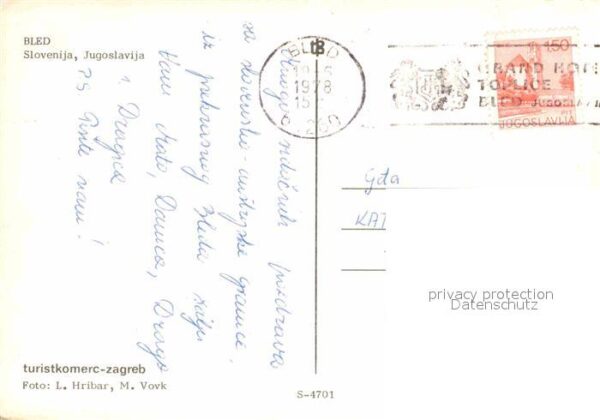 BLED
Slovenija, Jugoslavija
Mnogo srdačnih pozdrava
sa slovensko-austrijske granice.
iz prekrasnog Bleda šalju
Vam Mato, Danica, Drago
i Dragica
PS Pišite nam!
BLED
1978
15
260
GRAND HOTEL
TOPLICE
BLED JUGOSLAVIJA
1.50
JUGOSLAVIJA
Gđa
KAT
privacy protection
Datenschutz
turistkomerc-zagreb
Foto: L. Hribar, M. Vovk
S-4701